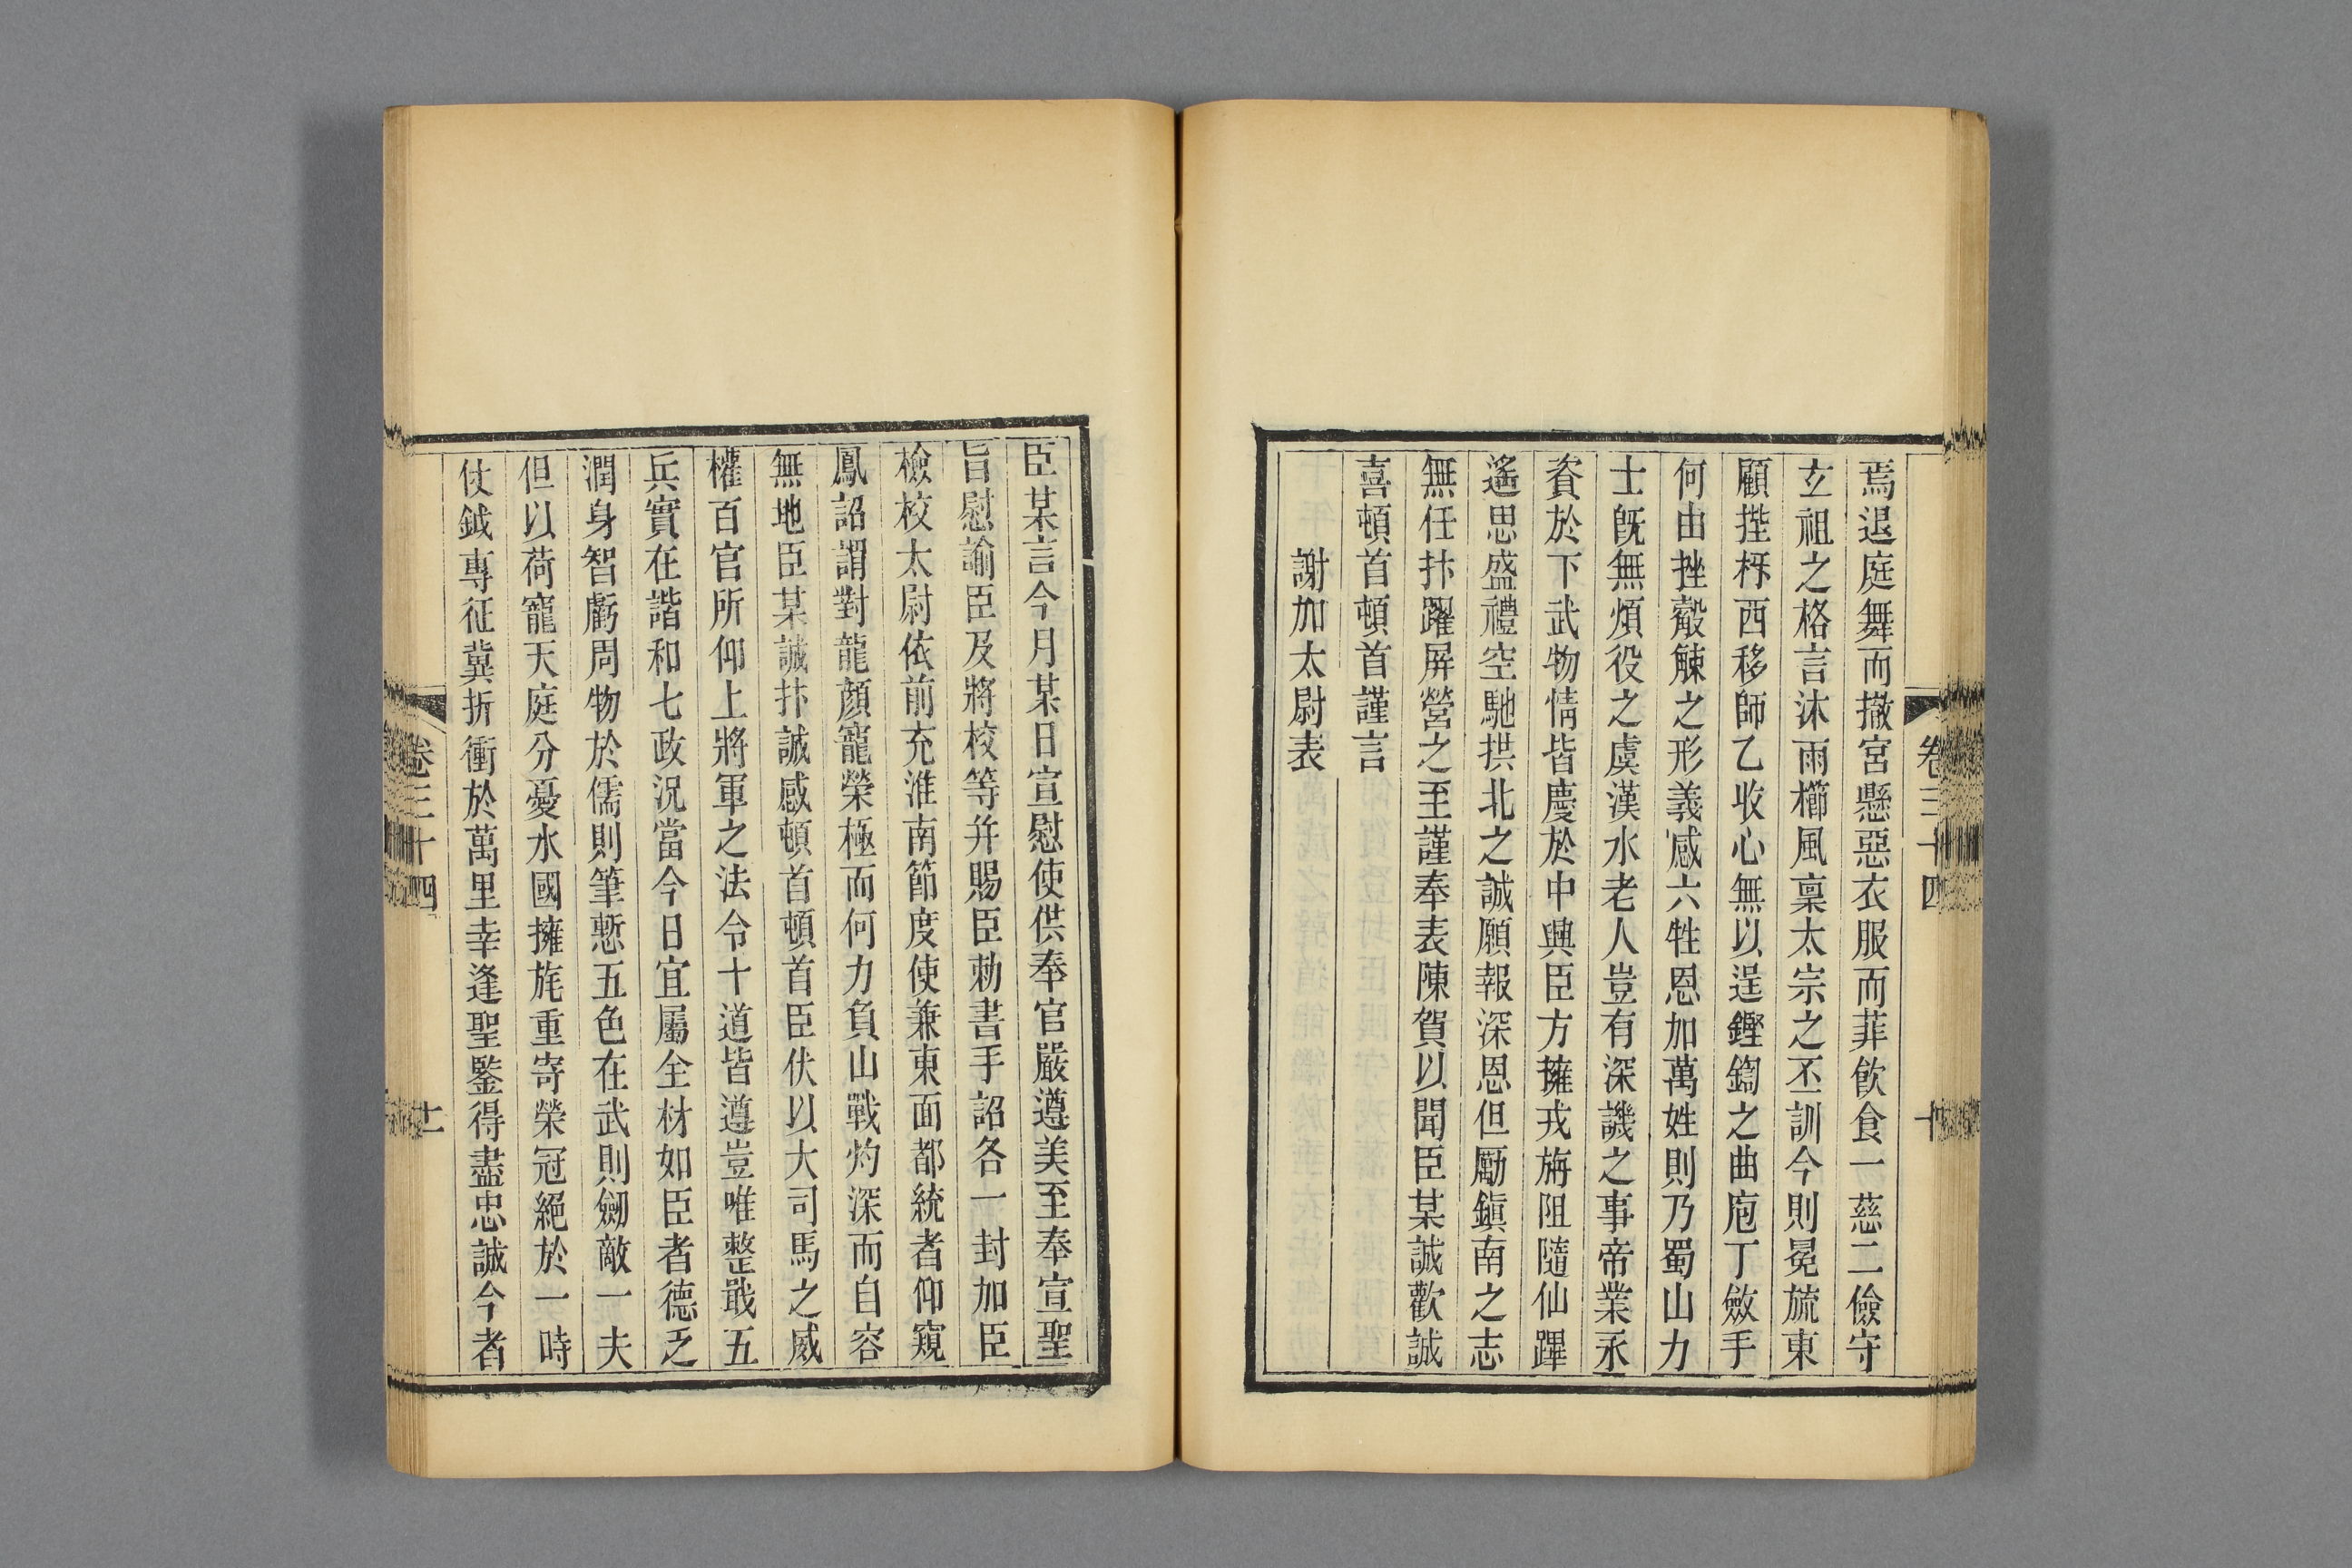 焉退庭舞而撤宮懸惡衣服而菲飮食一慈二儉守
玄祖之格言沐雨櫛風稟太宗之丕訓今則冕旒東
顧㨒柸西移師乙收心無以逞鏗鍧之曲庖丁斂手
何由挫觳觫之形義感六牲恩加萬姓則乃蜀山力
士旣無煩役之虞漢水老人豈有深譏之事帝業永
資於下武物情皆慶於中興臣方擁戎旃阻隨仙蹕
遙思盛禮空馳拱北之誠願報深恩但勵鎭南之志
無任抃躍屏營之至謹奉表陳賀以聞臣某誠歡誠
喜頓首頓首謹言
謝加太尉表
卷三十四
十
臣某言今月某日宣慰使供奉官嚴遵美至奉宣聖
旨慰諭臣及將校等幷賜臣勅書手詔各一封加臣
檢校太尉依前充淮南節度使兼東面都統者仰窺
鳳詔謂對龍顏寵榮極而何力負山戰灼深而自容
無地臣某誠抃誠感頓首頓首臣伏以大司馬之威
權百官所仰上將軍之法令十道皆遵豈唯整戢五
兵實在諧和七政況當今日宜屬全材如臣者德乏
潤身智虧周物於儒則筆慙五色在武則劒敵一夫
但以荷寵天庭分憂水國擁旄重寄榮冠絕於一時
仗鉞專征冀折衝於萬里幸逢聖鑒得盡忠誠今者
卷三十四
十一